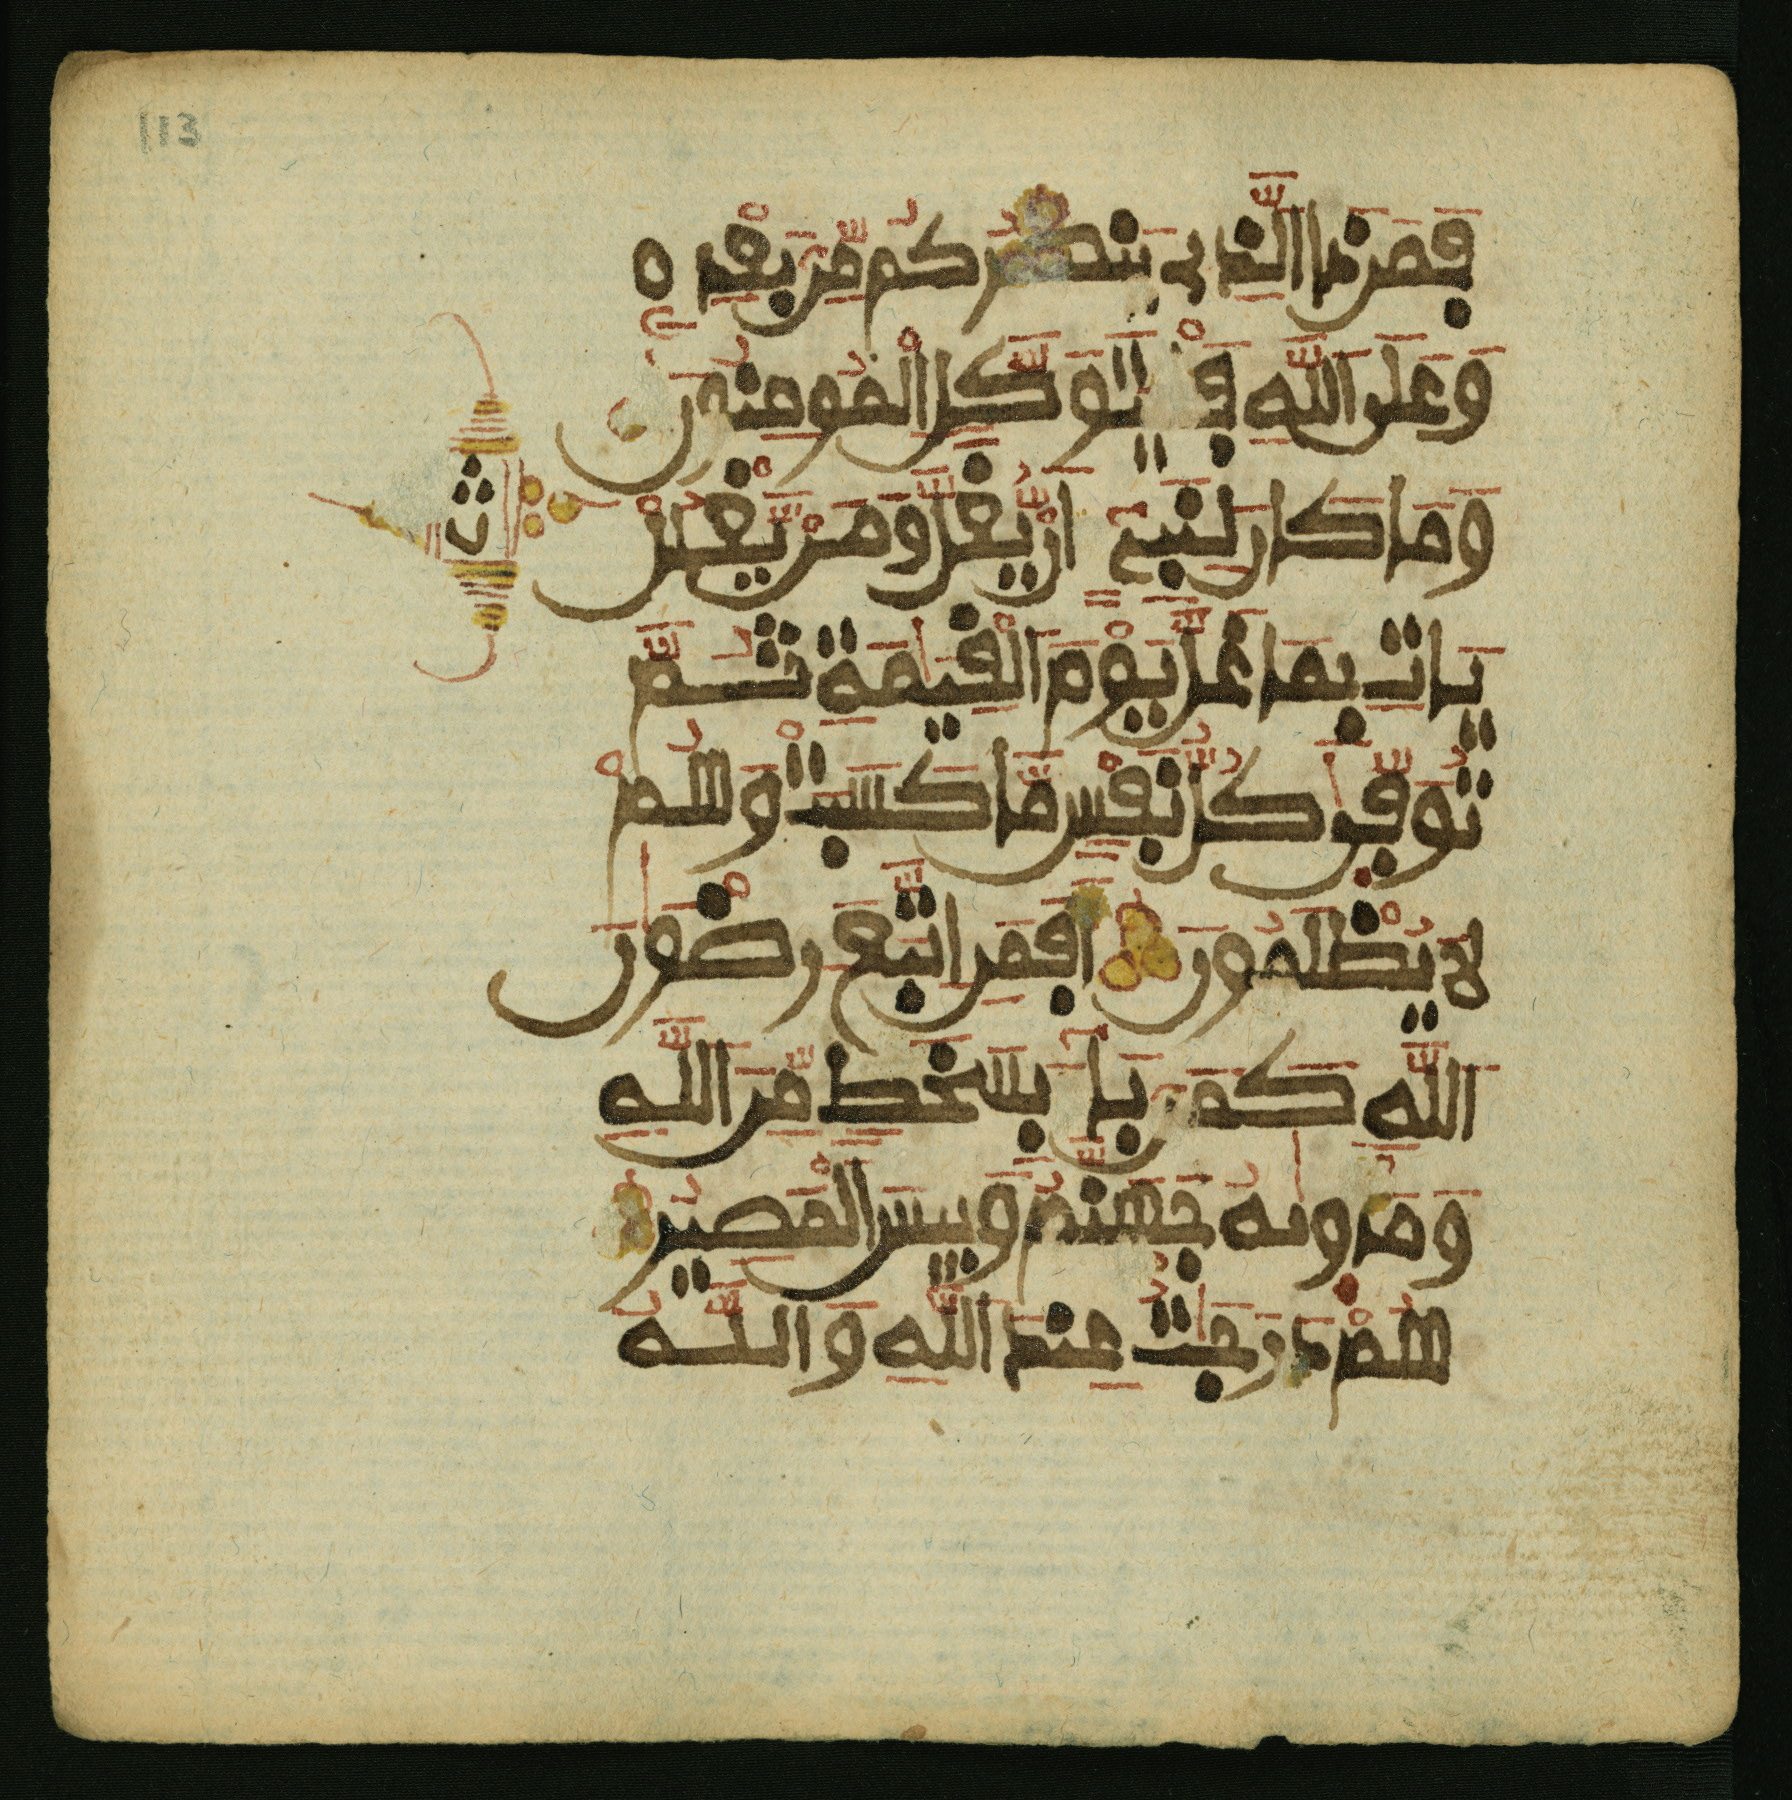 113
فَمَن ذَا الَّذِى يَنصُرُكُم مِّنۢ بَعْدِهِ
وَعَلَى اللَّهِ فَلْيَتَوَكَّلِ الْمُومِنُونَ
وَمَا كَانَ لِنَبِىٍٕ اَنْ يُّغَلَّ وَمَنْ يَّغْلُلْ
يَاتِ بِمَا غَلَّ يَوْمَ الْقِيَٰمَةِ ثُمَّ
تُوَفَّىٰ كُلُّ نَفْسٍ مَّا كَسَبَتْ وَهُمْ
لَا يُظْلَمُونَ اَفَمَنِ اتَّبَعَ رِضْوَٰنَ
اللَّهِ كَمَنۢ بَآءَ بِسَخَطٍ مِّنَ اللَّهِ
وَمَأْوَىٰهُ جَهَنَّمُ وَبِيسَ الْمَصِيرُ
هُمْ دَرَجَٰتٌ عِندَ اللَّهِ وَاللَّهُ
ثمن